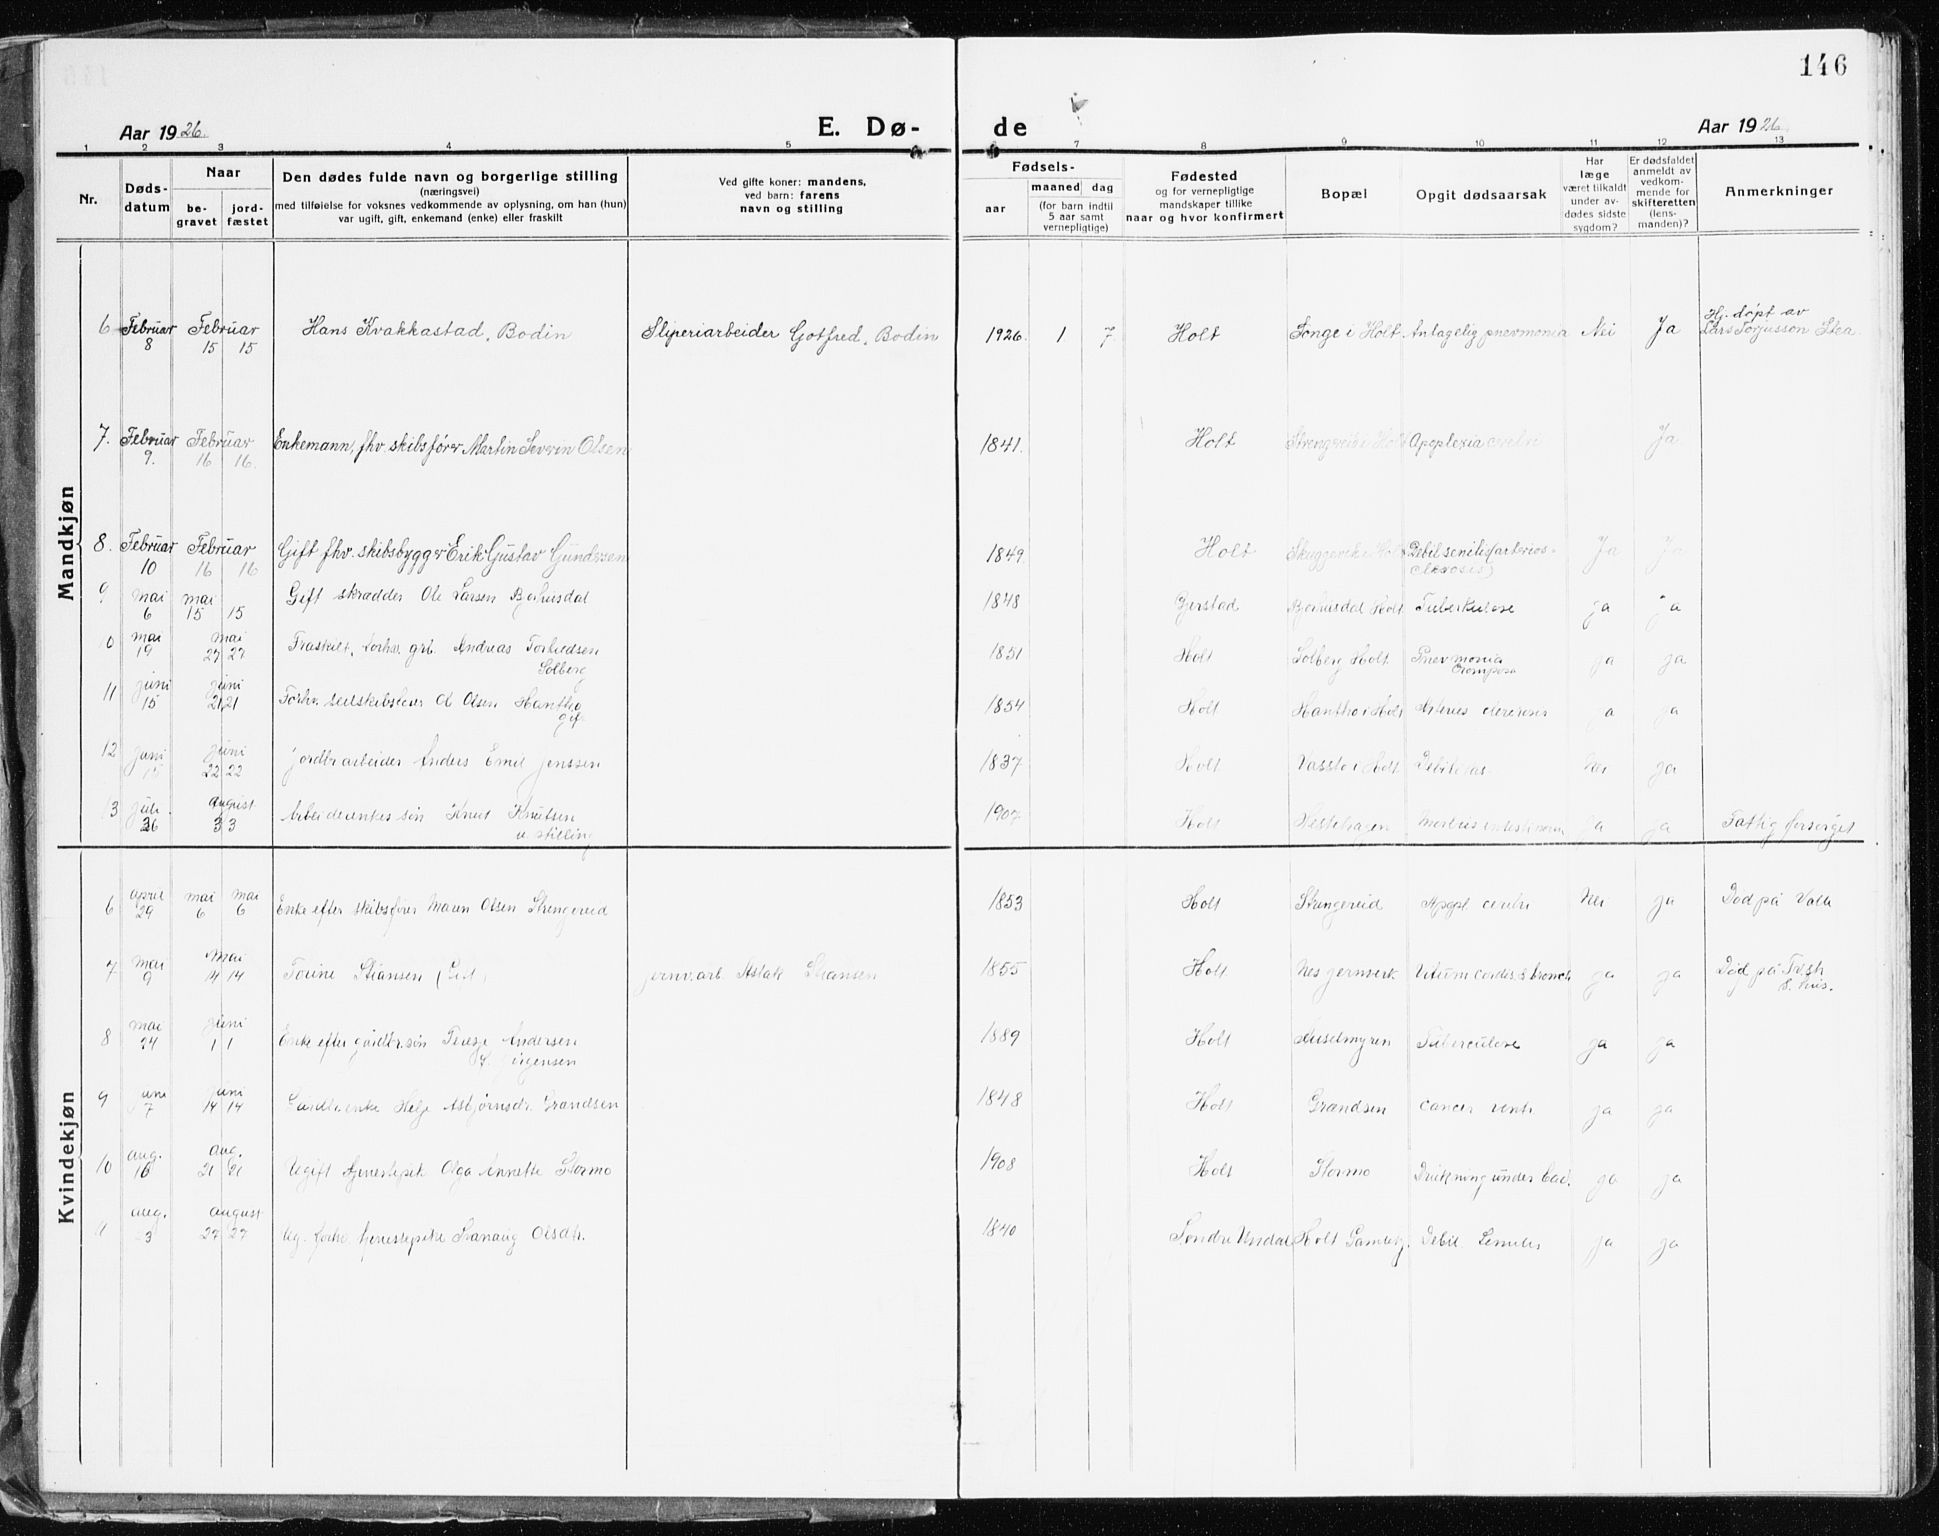 146
Aar 1926.
E. Dø-
de
Aar 1926.
1 2 3 4 5 7 8 9 10 11 12 13
Nr.
Døds-
datum
Naar
be-
gravet
jord-
fæstet
Den dødes fulde navn og borgerlige stilling
(næringsvei)
med tilføielse for voksnes vedkommende av oplysning, om han (hun)
var ugift, gift, enkemand (enke) eller fraskilt
Ved gifte koner: mandens,
ved barn: farens
navn og stilling
Fødsels-
aar
maaned dag
(for barn indtil
5 aar samt
vernepligtige)
Fødested
og for vernepligtige
mandskaper tillike
naar og hvor konfirmert
Bopæl
Opgit dødsaarsak
Har
læge
været tilkaldt
under av-
dødes sidste
sygdom?
Er dødsfaldet
anmeldt av
vedkom-
mende for
skifteretten
(lens-
manden)?
Anmerkninger
Mandkjøn
6 Februar 8 Februar 15 15 Hans Kvakkastad, Bodin Sliperiarbeider Gotfred, Bodin 1926. 1. 7. Holt Songe i Holt. Antagelig pnevmonia Nei Ja Hj. døpt av
Lars Torjusson Stea.
7. Februar 9. Februar 16 16. Enkemann, fhv. skibsfører Martin Severin Olsen 1841. Holt Strengereid i Holt Apoplexia cerebri Ja
8. Februar 10 Februar 16 16 Gift fhv. skibsbygger Erik Gustav Gundersen 1849. Holt Skuggevik i Holt Debil. senilis (arterios-
clerosis) Ja Ja
9 mai 6 mai 15 15 Gift skrædder Ole Larsen Bjorhusdal 1848 Gjerstad Bjorhusdal Holt Tuberkulose ja ja
10 mai 19 mai 27 27 Fraskilt, forhv. grb. Andreas
Solberg 1851 Holt Solberg Holt Pnevmonia ja ja
11 juni 15 juni 21 21 Forhv. Olsen Hantho
gift 1854 Holt Hantho i Holt ja ja
12 juni 15 juni 22 22 jordbr.arbeider Anders Emil Jenssen 1837 Holt i Holt Debilitas Nei ja
13 juli 26 august 3 3 Knut Knutsen
u. stilling 1907 Holt ja ja Fattig forsørget
Kvindekjøn
6 april 29 mai 6 mai 6 Enke efter skibsfører Maren Olsen Strengereid 1853 Holt Strengereid Apopl. cerebri Nei ja Død på
7 mai 9 mai 14 14 Torine Stiansen jernv.arb. Aslak Stiansen 1855 Holt Nes jernverk Vitium cordis & bronch ja ja Død på Tv.str.
S. hus.
8 mai 24 juni 1 1 Enke efter gårdbr. søn Terese Andersen
Jørgensen 1889 Holt Tuberculose ja ja
9 juni 7 juni 14 14 enke Helje Asbjørnsdr. Grandsen 1848 Holt Grandsen cancer ventr ja ja
10 aug. 16 aug. 21 21 Ugift tjenestepik Olga Annette Stormo 1908 Holt Stormo Drukning under bad. ja ja
11 aug. 23 august 27 27 Ug. forhv. tjenestepike Olsdtr. 1840 Søndre Undal Holt Gamlehj. Debil. Senilis ja ja